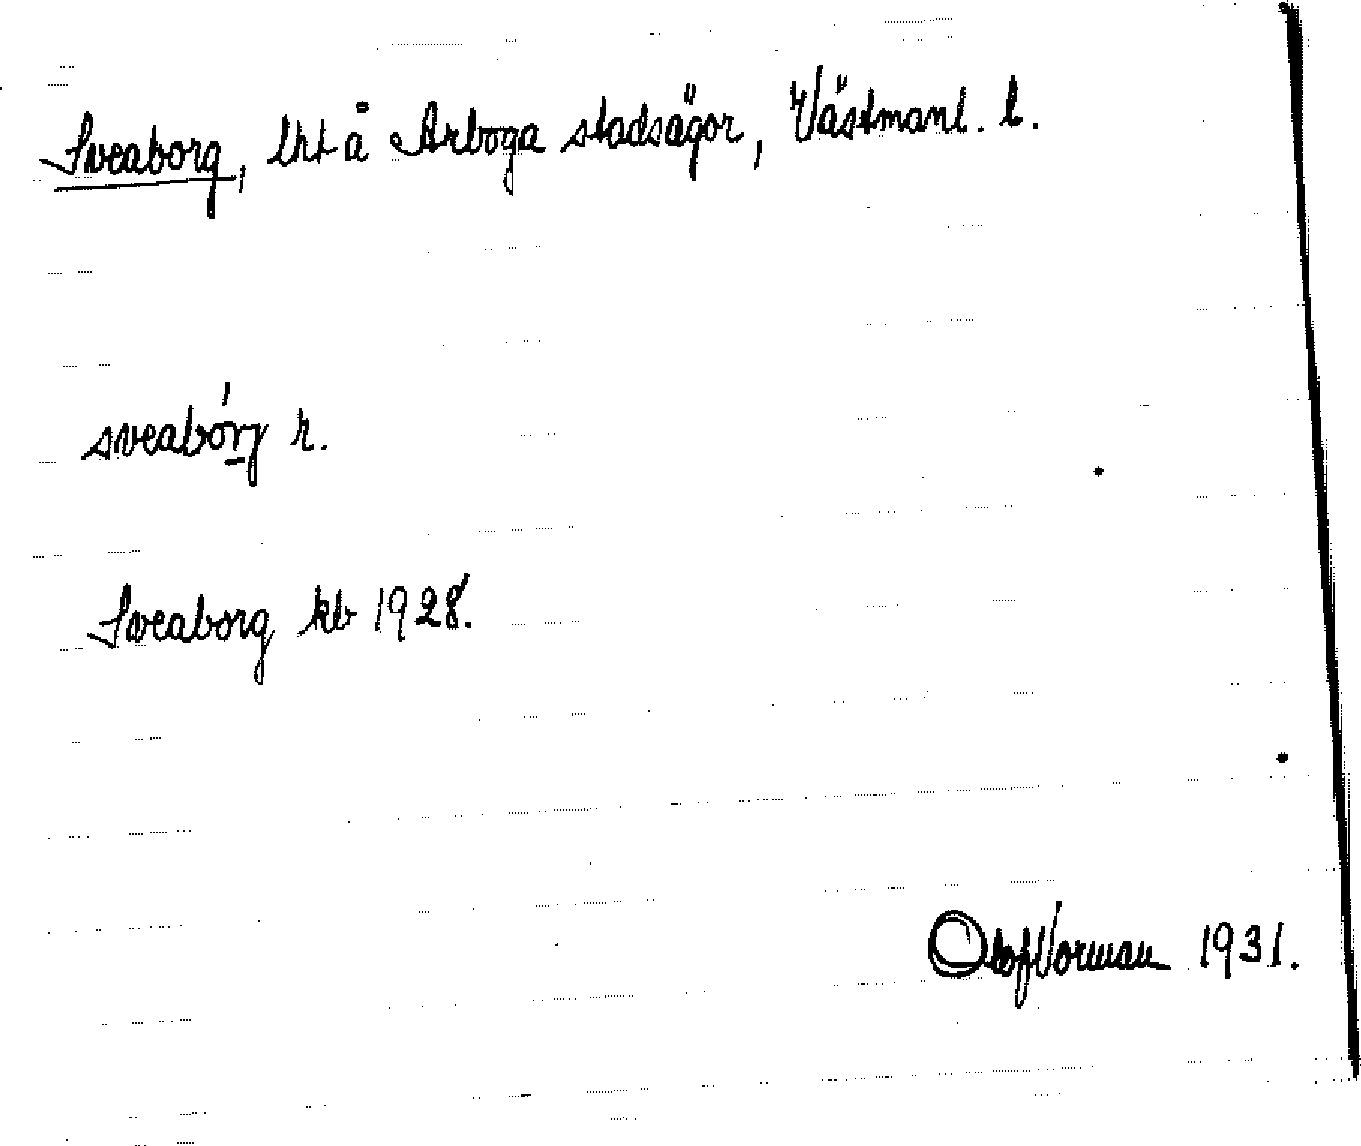 Sveaborg, lht å Arboga stadsägor, Västmanl. l.
sveabórj r.
Sveaborg kb 1928.
Olof Vorman 1931.